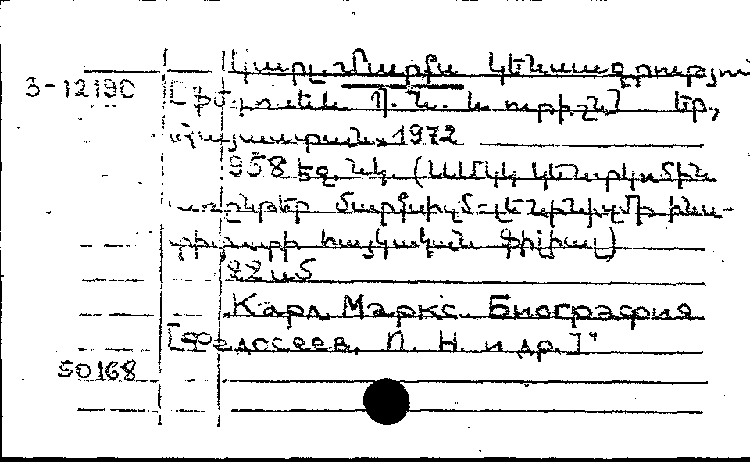 Կարլ Մարքս Կենսագրություն
3-12190 [Ֆեդոսեև Պ. Ն. և ուրիշն] Եր,
Հայաստան 1972
958 եջ. նկ. (ՍՄԿԿ Կենտկոմին
առընթեր մարքսիզմ-լենինիզմի ինս-
տիտուտի հայկական ֆիլիալ)
82սմ
Карл Маркс. Биография
[Федосеев, П. Н. и др.]"
50168